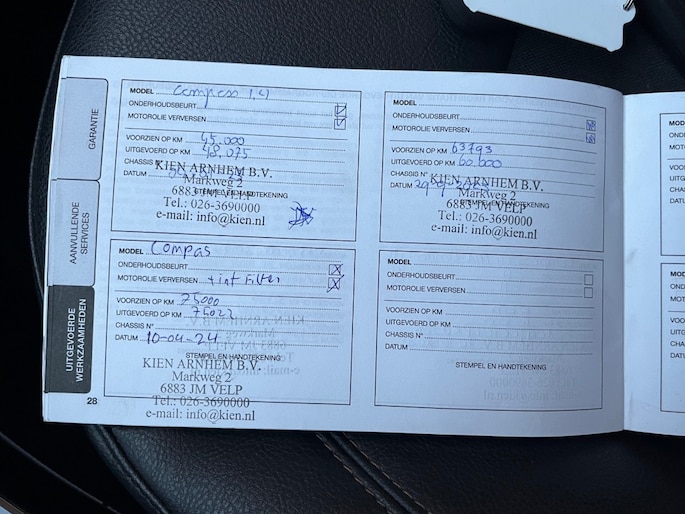 GARANTIE
AANVULLENDE
SERVICES
UITGEVOERDE
WERKZAAMHEDEN
28
MODEL Compass 1,4
ONDERHOUDSBEURT
MOTOROLIE VERVERSEN
VOORZIEN OP KM 45.000
UITGEVOERD OP KM 48.075
CHASSIS N°
DATUM
STEMPEL EN HANDTEKENING
KIEN ARNHEM B.V.
Markweg 2
6883 JM VELP
Tel.: 026-3690000
e-mail: info@kien.nl
MODEL
ONDERHOUDSBEURT
MOTOROLIE VERVERSEN
VOORZIEN OP KM 63793
UITGEVOERD OP KM 60.000
CHASSIS N°
DATUM
STEMPEL EN HANDTEKENING
KIEN ARNHEM B.V.
Markweg 2
6883 JM VELP
Tel.: 026-3690000
e-mail: info@kien.nl
MODEL Compas
ONDERHOUDSBEURT
MOTOROLIE VERVERSEN + int Filter
VOORZIEN OP KM 75000
UITGEVOERD OP KM 75022
CHASSIS N°
DATUM 10-04-24
STEMPEL EN HANDTEKENING
KIEN ARNHEM B.V.
Markweg 2
6883 JM VELP
Tel.: 026-3690000
e-mail: info@kien.nl
MODEL
ONDERHOUDSBEURT
MOTOROLIE VERVERSEN
VOORZIEN OP KM
UITGEVOERD OP KM
CHASSIS N°
DATUM
STEMPEL EN HANDTEKENING